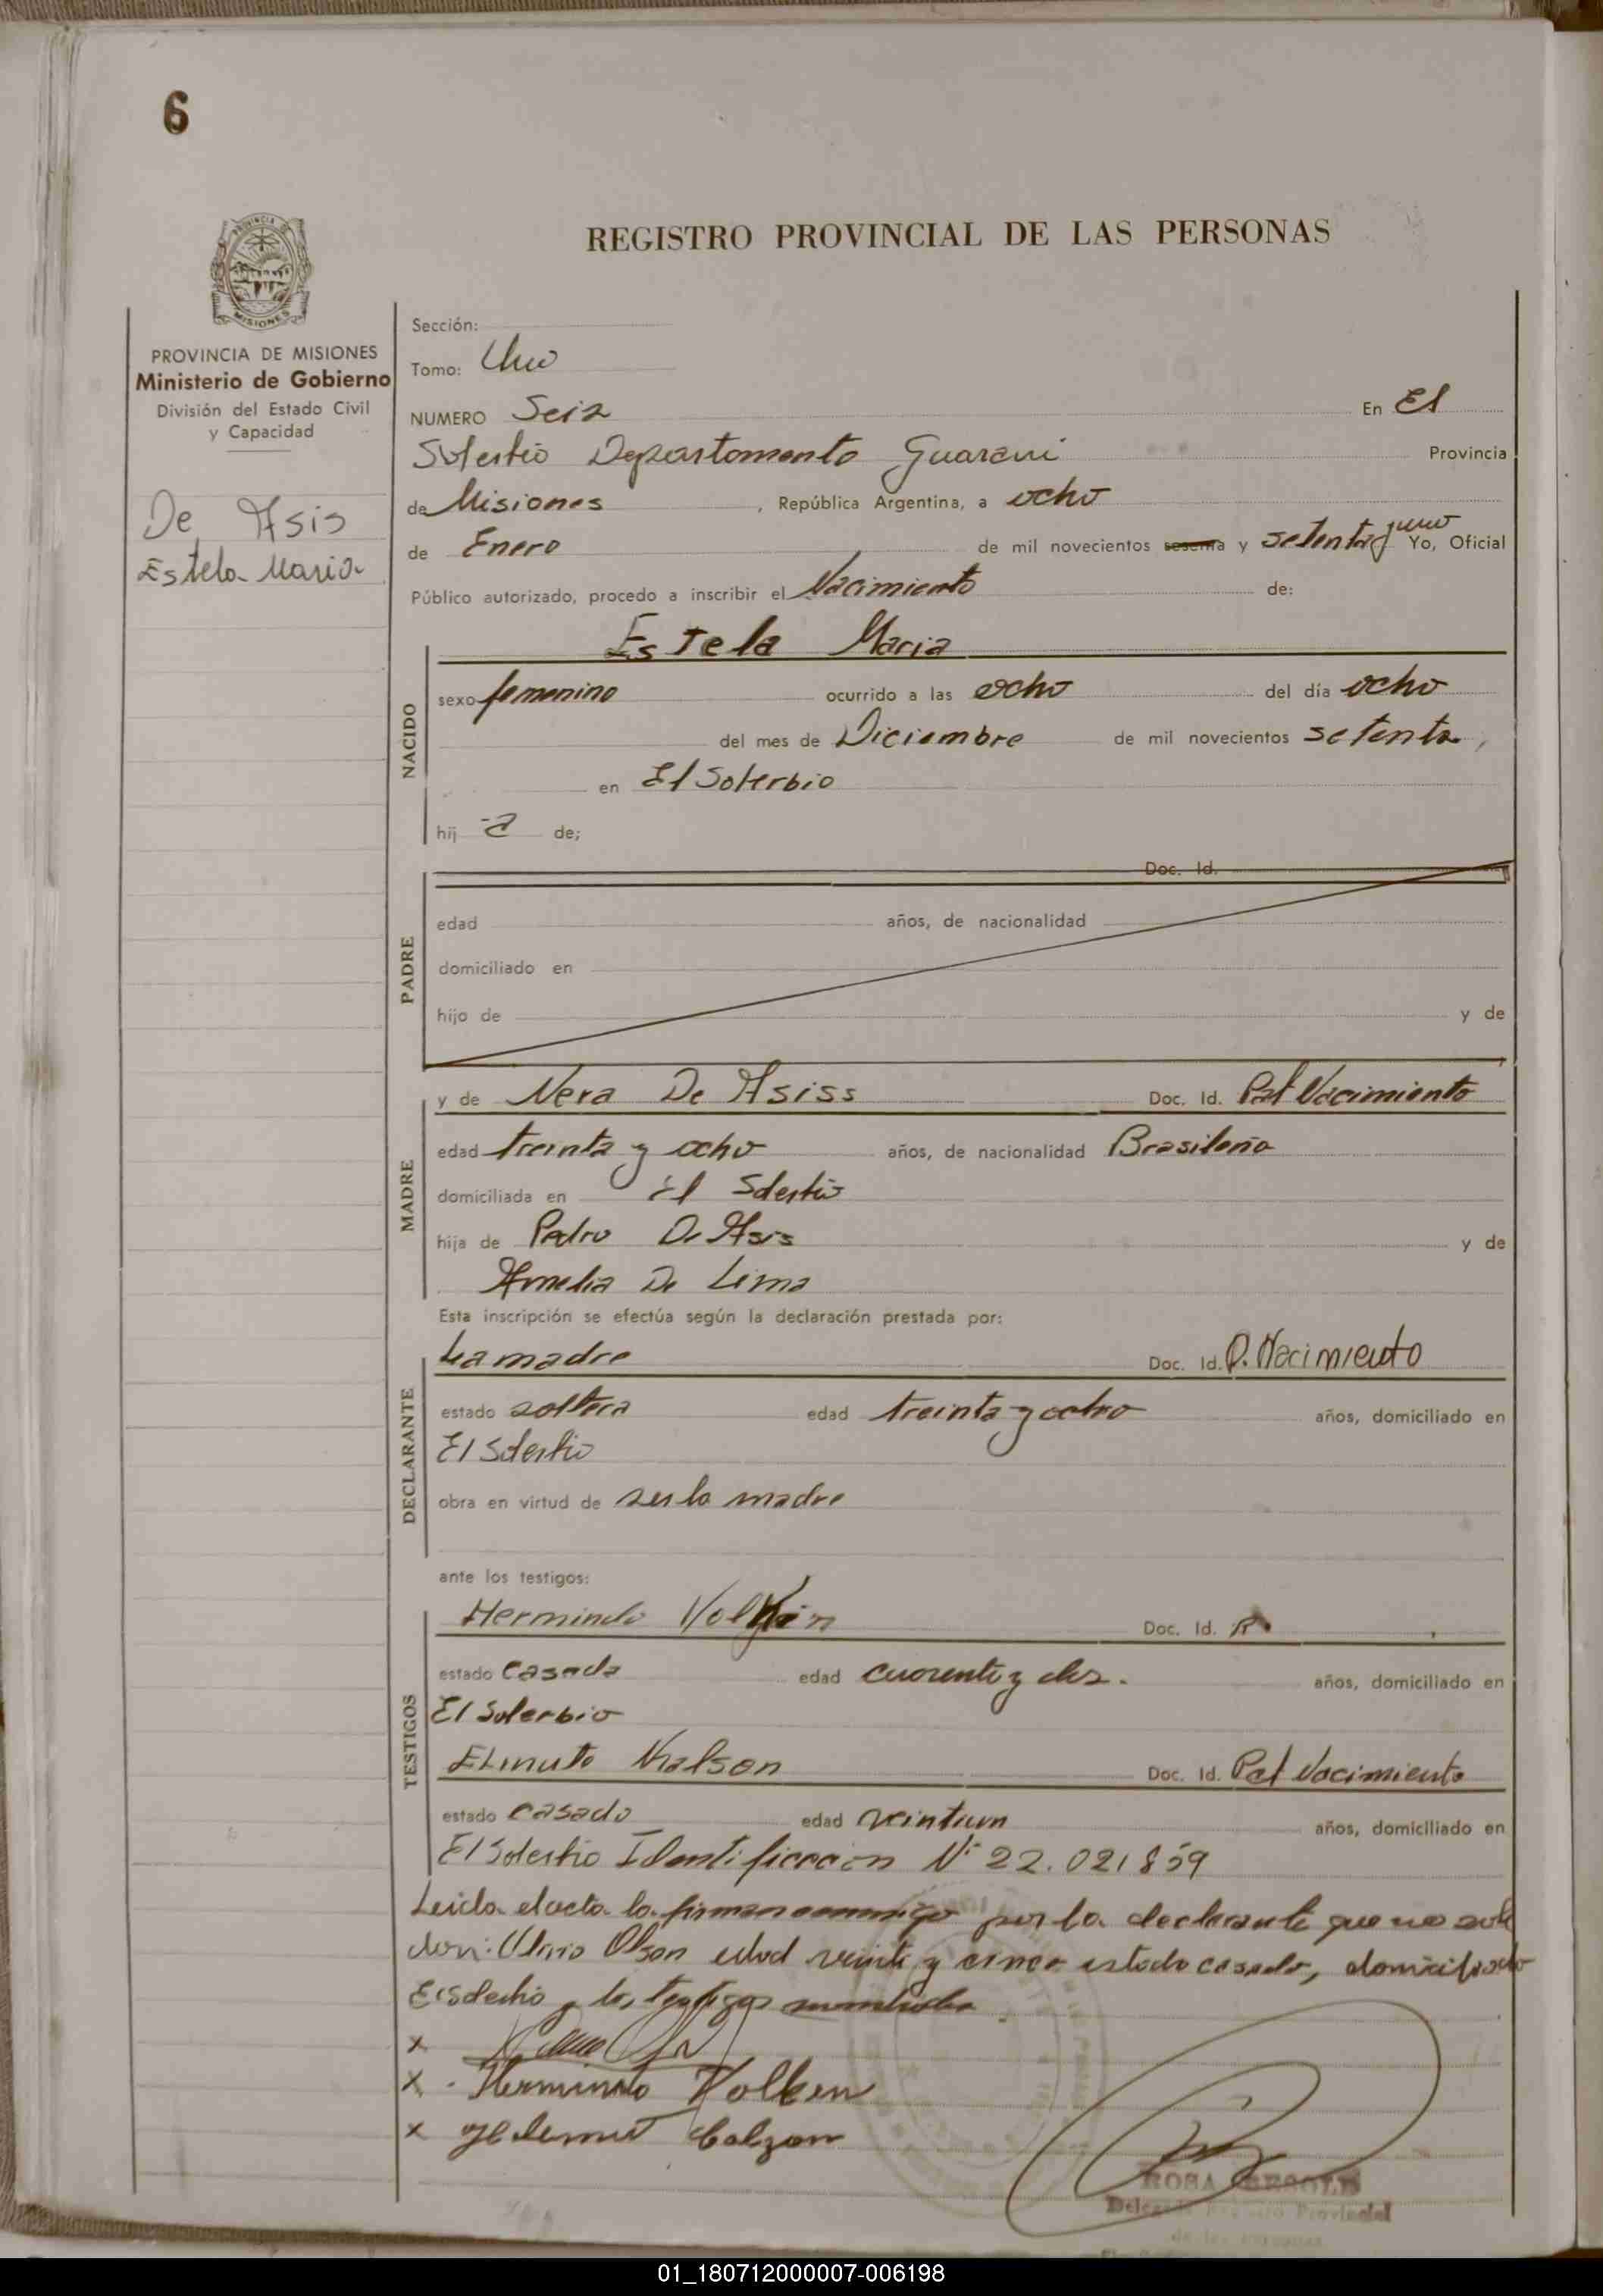 6
REGISTRO PROVINCIAL DE LAS PERSONAS
PROVINCIA DE
MISIONES
PROVINCIA DE MISIONES
Ministerio de Gobierno
División del Estado Civil
y Capacidad
De Asis
Estela Maria
Sección:
Tomo: Uno
NUMERO Seis En El
Soberbio Departamento Guarani Provincia
de Misiones, República Argentina, a ocho
de Enero de mil novecientos sesenta y setenta y uno Yo, Oficial
Público autorizado, procedo a inscribir el Nacimiento de:
Estela Maria
NACIDO
sexo femenino ocurrido a las ocho del día ocho
del mes de Diciembre de mil novecientos setenta,
en El Soberbio
hij -a de;
PADRE
Doc. Id.
edad años, de nacionalidad
domiciliado en
hijo de y de
MADRE
y de Nera De Asiss Doc. Id. Pat Nacimiento
edad treinta y ocho años, de nacionalidad Brasileña
domiciliada en El Soberbio
hija de Pedro De Asis y de
Amelia De Lima
Esta inscripción se efectúa según la declaración prestada por:
DECLARANTE
La madre Doc. Id. P. Nacimiento
estado soltera edad treinta y ocho años, domiciliado en
El Soberbio
obra en virtud de ser la madre
ante los testigos:
TESTIGOS
Hermindo Doc. Id.
estado casado edad cuarenta y dos. años, domiciliado en
El Soberbio
Doc. Id. Pat Nacimiento
estado casado edad veintiun años, domiciliado en
El Soberbio Identificacion Nº 22.021859
Leida el acta la firman conmigo por la declarante que no sabe
don: Olson edad veinte y cinco estado casado, domiciliado
El Soberbio y los testigos
x
x Hermindo Volken
x
ROSA
Provincial
de las personas
01_180712000007-006198